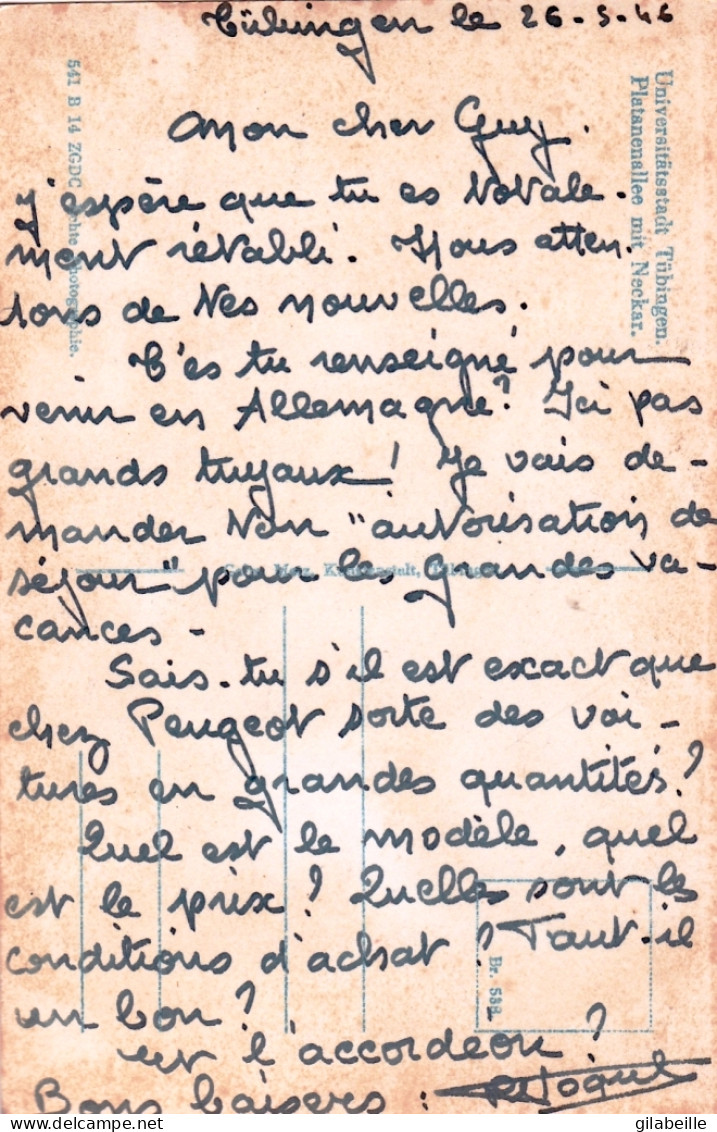 Tübingen le 26-5-46
Mon cher Guy.
J'espère que tu es totale-
ment rétabli. Nous atten-
tons de tes nouvelles.
T'es tu renseigné pour
venir en Allemagne? Ici pas
grands tuyaux! Je vais de-
mander ton "autorisation de
séjour" pour les grandes va-
cances-
Sais-tu s'il est exact que
chez Peugeot sorte des voi-
tures en grandes quantités?
Quel est le modèle, quel
est le prix? Quelles sont les
conditions d'achat? Faut-il
un bon?
et l'accordéon?
Bons baisers:
Universitätsstadt Tübingen.
Platanenallee mit Neckar.
541 B 14 ZGDC Echte Photographie.
Gebr. Metz, Kunstanstalt, Tübingen
Br. 538
© gilabeille